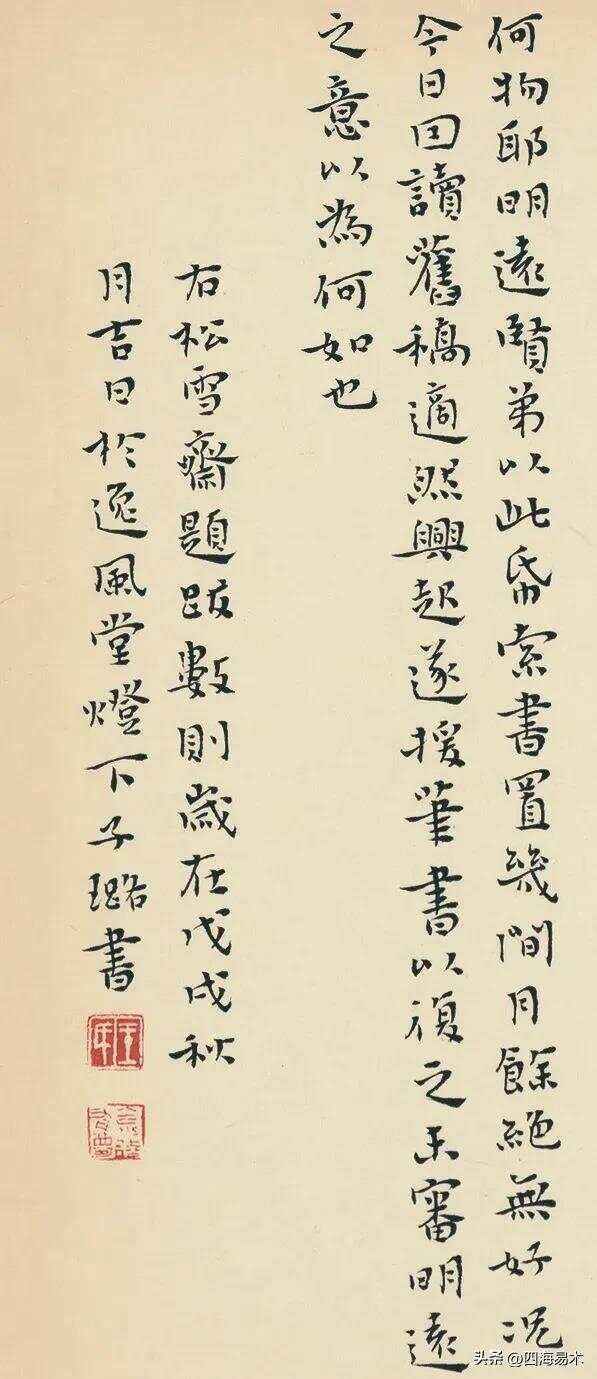 何物耶明遠賢弟以此帋索書置幾間月餘絕無好况
今日因讀舊稿適然興起遂援筆書以復之未審明遠
之意以為何如也
右松雪齋題跋數則歲在戊戌秋
月吉日於逸風堂燈下子璐書
头条@四海易木